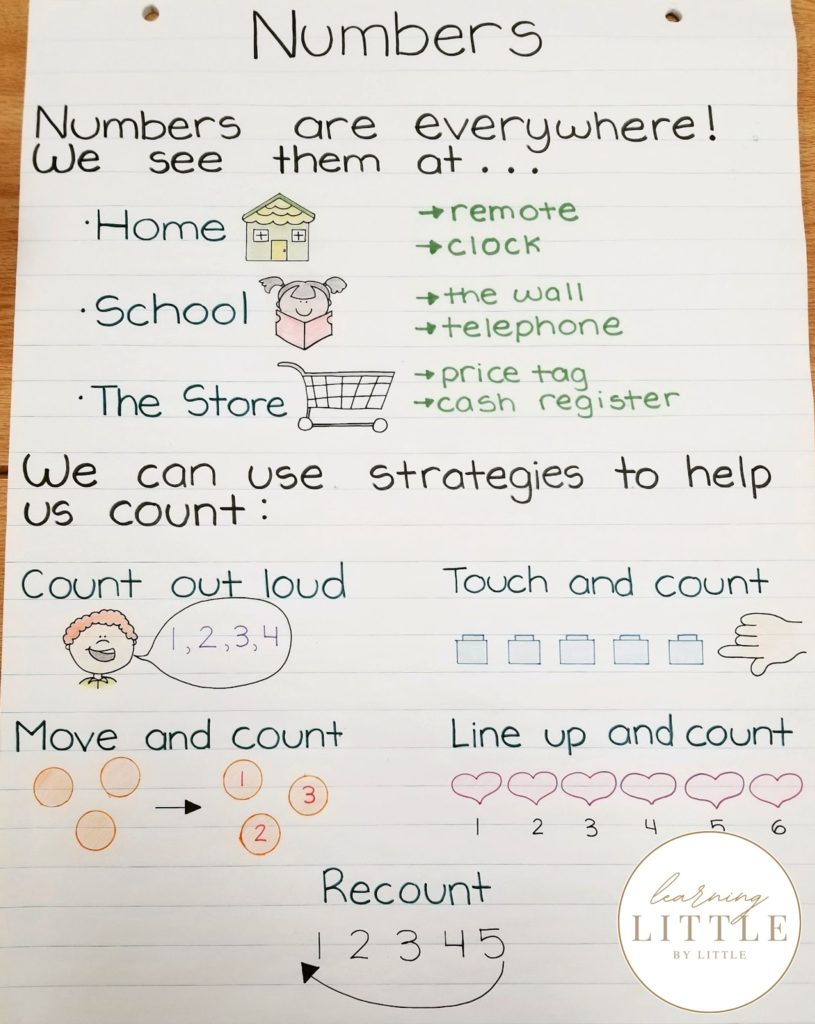 Numbers
Numbers are everywhere!
We see them at...
·Home
→remote
→clock
·School
→the wall
→telephone
·The Store
→price tag
→cash register
We can use strategies to help
us count:
Count out loud
1,2,3,4
Touch and count
Move and count
1
3
2
Line up and count
1 2 3 4 5 6
Recount
1 2 3 4 5
learning
LITTLE
BY LITTLE